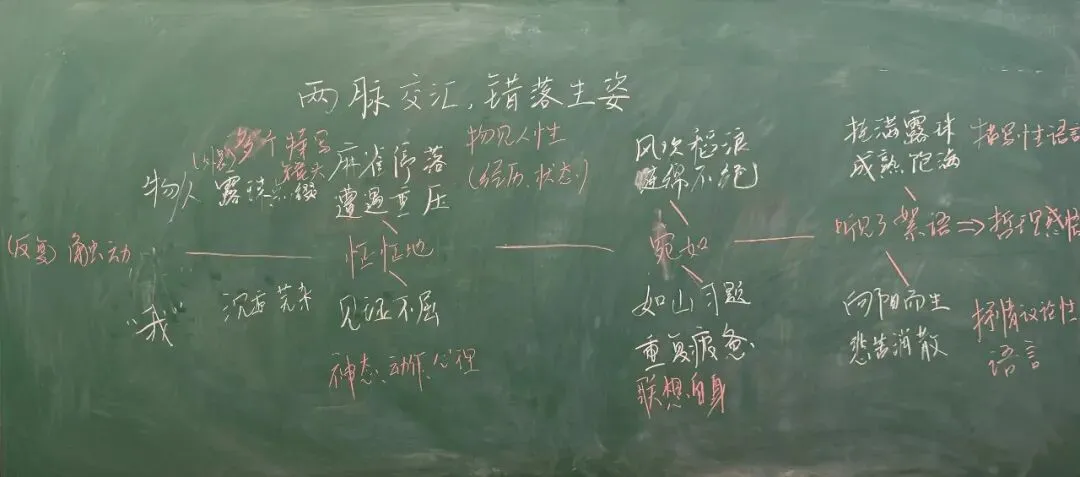 两脉交汇，错落生姿
物人
(小题)
多个特写
镜头
露珠点缀
麻雀停落
遭遇重压
物见人性
(经历、状态)
风吹稻浪
连绵不绝
挂满露珠
成熟饱满
描写性语言
(反复)触动
怔怔地
宛如
听见了絮语⇒哲理感悟
"我"
见证不屈
神态、动作、心理
如山习题
重复疲惫
联想自身
向阳而生
悲苦消散
抒情议论性
语言